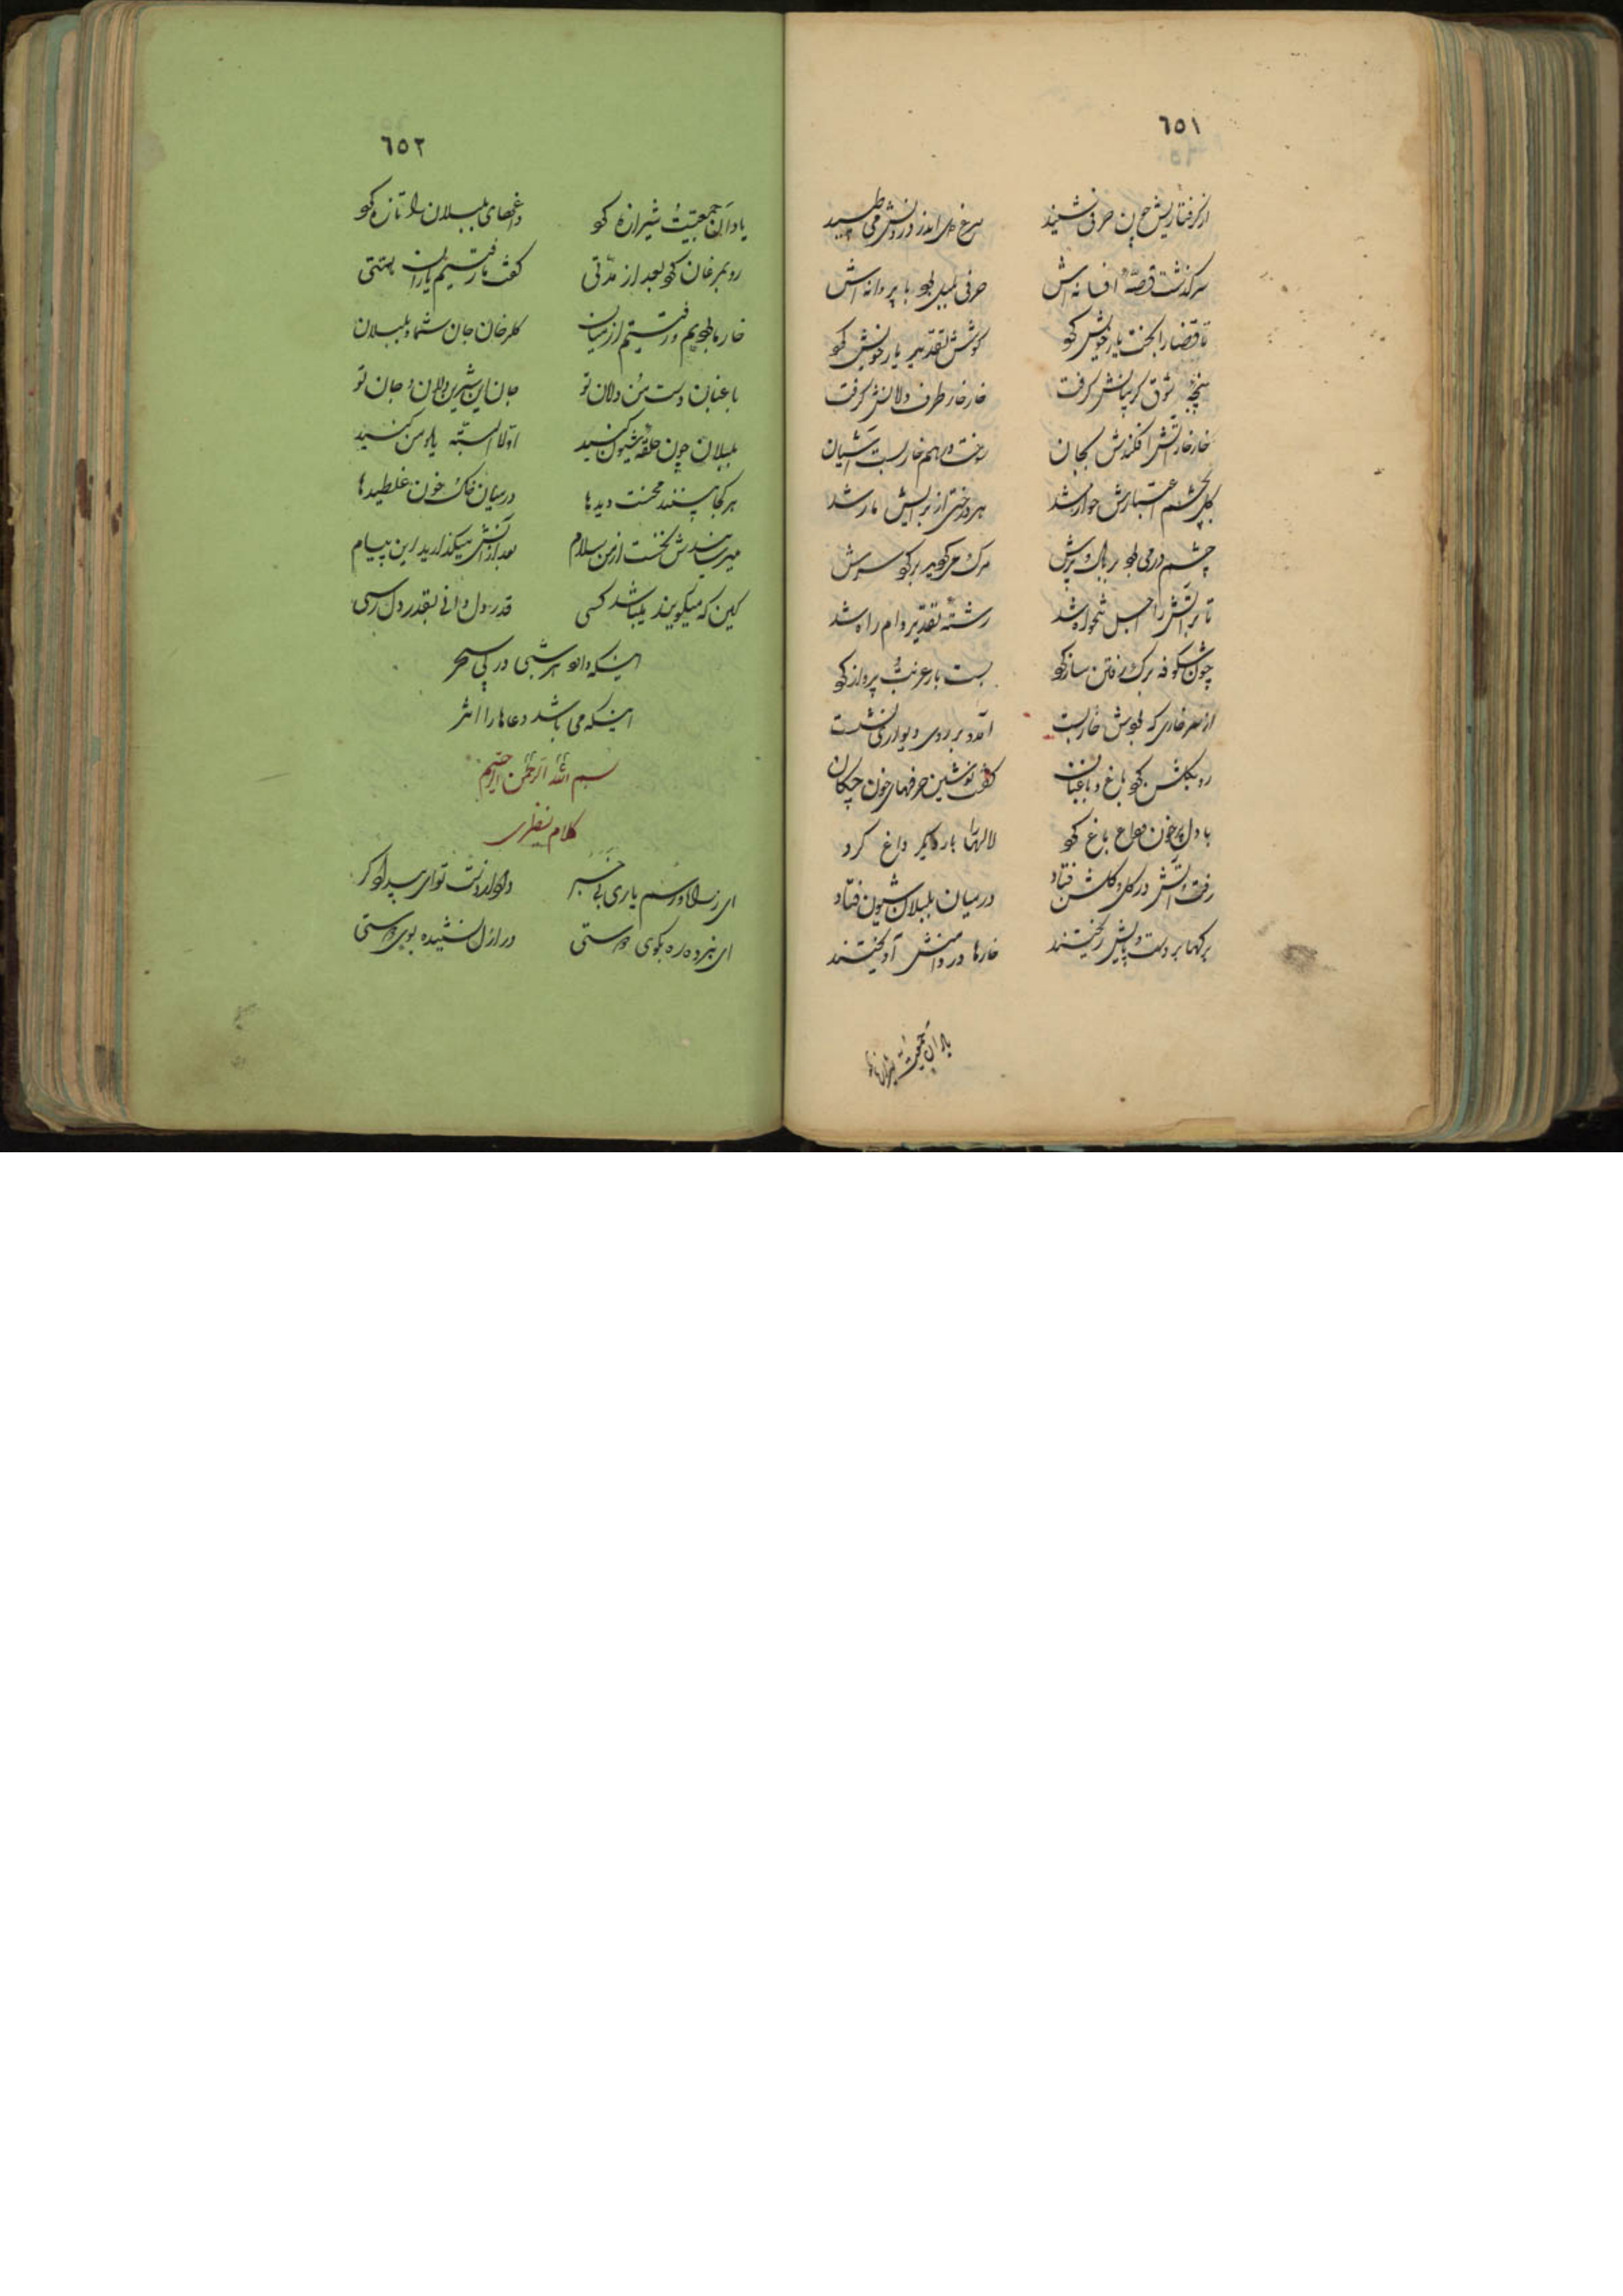 ٦٥١
از گرفتاریش چون حرفی شنید مرغ دل اندر درونش می طپید
سرگذشت قصّهٔ افسانه اش حرفی بلبل بود با پروانه اش
تا قضا را بخت یار خویش کو گوش تقدیر یار خویش کو
پنجهٔ شوق گریبانش گرفت خار خار طرف دلانش گرفت
خار خار آتش افکندش بجان سوخت در هم خار بست آشیان
گل بچشم اعتبارش خوار شد هر درختی از برایش مار شد
چشم در می بود بر بال و پرش مرک می کوید بر کو سرش
تا براتش را اجل تنخواه شد رشتهٔ تقدیر دام راه شد
چون شکوفه برک رفتن ساز کو بست بار عزیت پرواز کو
از سر خاری که بودش خار بست آمد و بر روی دیواری نشست
رو بکلشن کو باغ و باغبان گفت نوشین حرفهای خون چکان
با دل پر خون وداع باغ کو لالها را بار دیگر داغ کرد
رفت و آتش در گل و گلشن فتاد در میان بلبلان شیون فتاد
برکها بر دست و پایش ریختند خارها در دامنش آویختند
یاد آن جمعیت شیرازه کو
٦٥٢
یاد آن جمعیت شیرازه کو داغهای بلبلان را تازه کو
رو بمرغان کو بعد از مدّتی گفت ما رفتیم یاران همتی
خار ما بودیم و رفتیم از میان گلرخان جان شما و بلبلان
باغبان دست من و دلان تو جان این شیرین دلان و جان تو
بلبلان چون حلقهٔ شیون کنید اوّلا البتّه یاد من کنید
هر کجا بینند محنت دیدها در میان خاک و خون غلطیدها
میرسانیدش نخست از من سلام بعد از آنش میگذارید این پیام
کین که میگویند یلباشد کسی قدر دل دانی بقدر دل رسی
اینکه داد هر شبی در پی سحر
اینکه می باشد دعاها را اثر
بسم اللّه الرّحمن الرّحیم
کلام نظری
ای ز راه و رسم یاری بی خبر داد از دست تو ای بیدادگر
ای نبرده ره بکوی دوستی در ازل نشنیده بوی دوستی